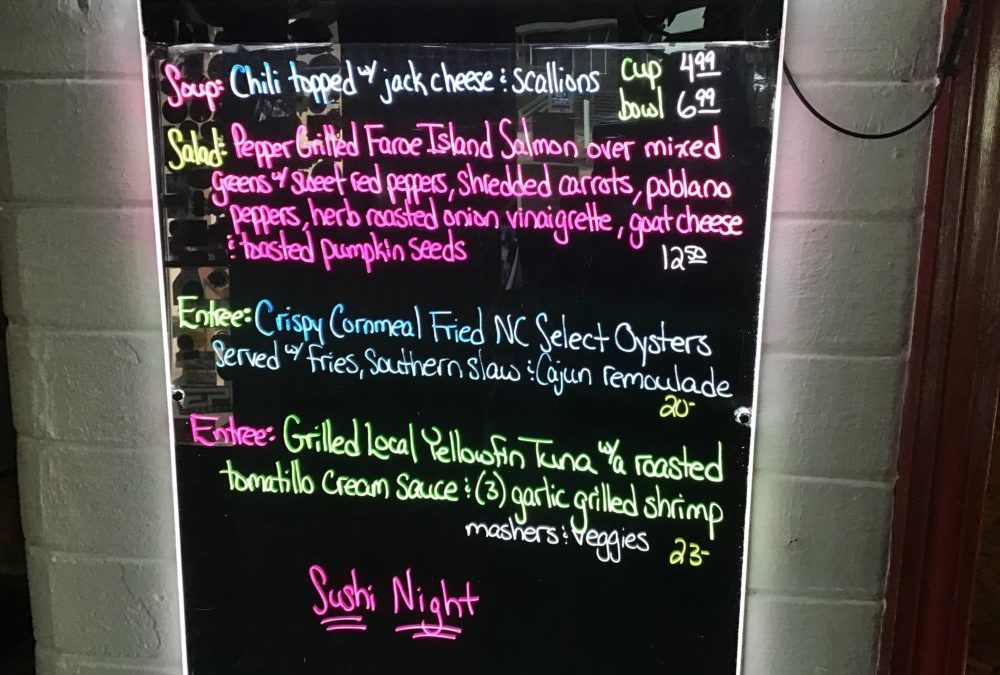 Soup: Chili topped w/ jack cheese & scallions cup 4.99
bowl 6.99
Salad: Pepper Grilled Faroe Island Salmon over mixed
greens w/ sweet red peppers, shredded carrots, poblano
peppers, herb roasted onion vinaigrette, goat cheese
& toasted pumpkin seeds 12.50
Entree: Crispy Cornmeal Fried NC Select Oysters
Served w/ fries, Southern slaw & Cajun remoulade
20-
Entree: Grilled Local Yellowfin Tuna w/a roasted
tomatillo cream sauce & (3) garlic grilled shrimp
mashers & veggies 23-
Sushi Night